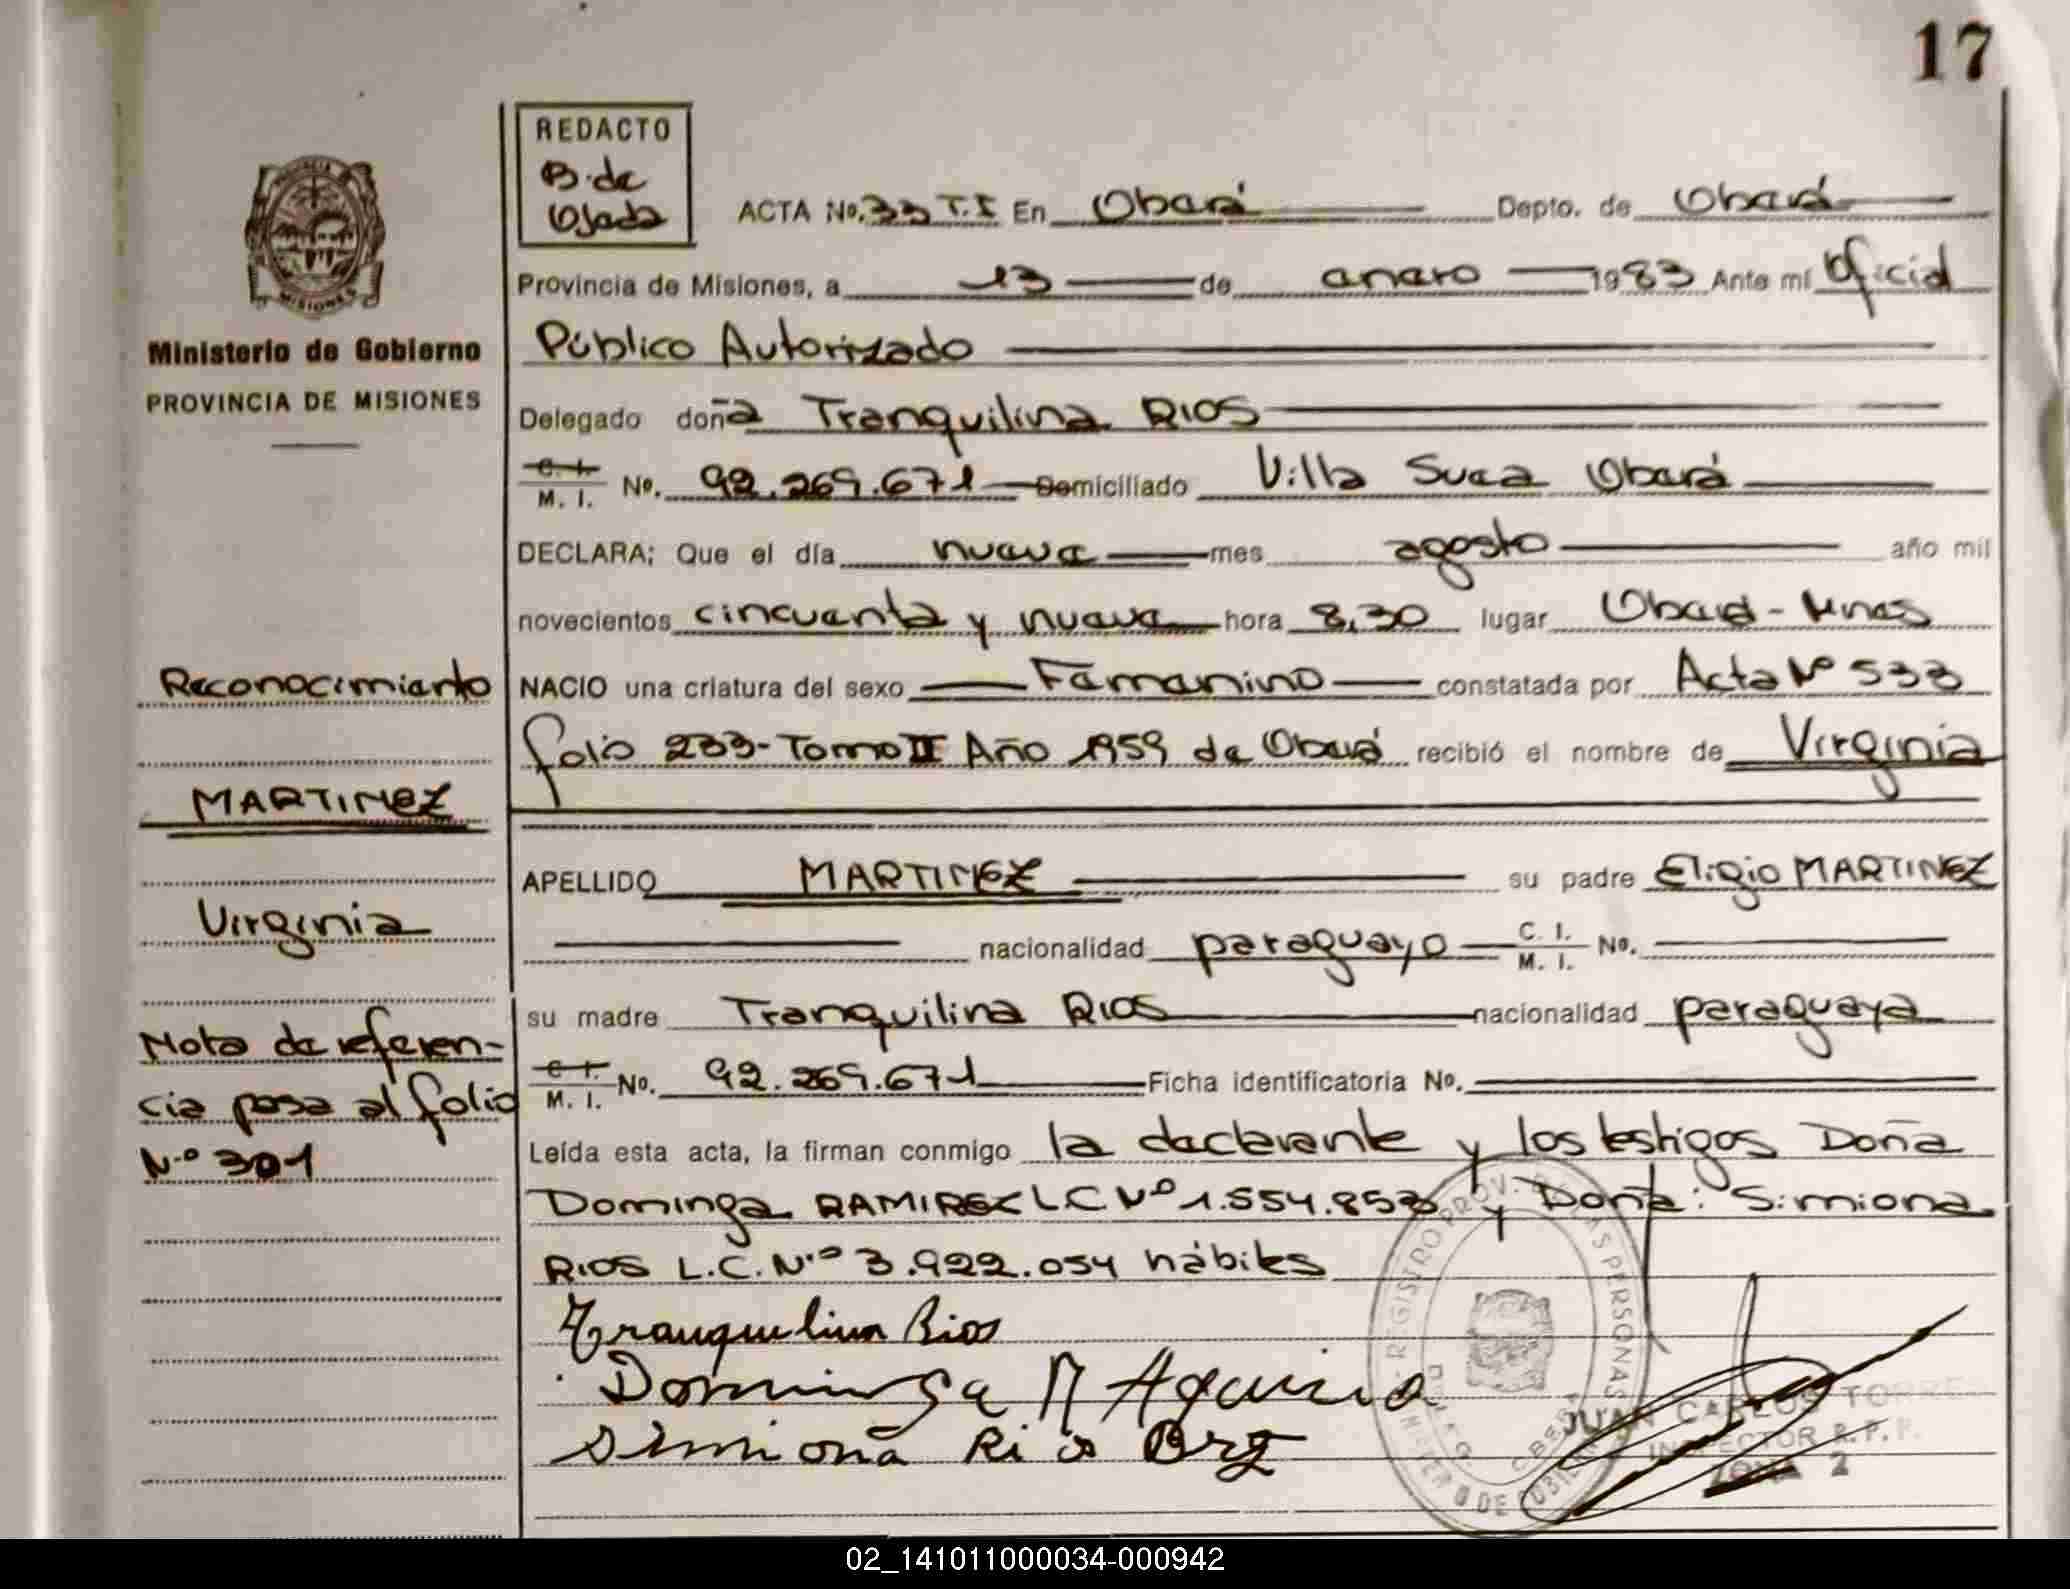 17
REDACTO
B. de
Ojeda
ACTA No. 33 T.I En Oberá Depto. de Oberá
Provincia de Misiones, a 13 de enero 1983 Ante mí Oficial
Público Autorizado
Delegado doña Tranquilina RIOS
C. I. / M. I. No. 92.269.671 Domiciliado Villa Sueca Oberá
DECLARA: Que el día nueve mes agosto año mil
novecientos cincuenta y nueve hora 8,30 lugar Oberá - Mnes
NACIO una criatura del sexo Femenino constatada por Acta Nº 533
folio 233 - Tomo II Año 1959 de Oberá recibió el nombre de Virginia
APELLIDO MARTINEZ su padre Eligio MARTINEZ
nacionalidad paraguayo C. I. / M. I. No.
su madre Tranquilina RIOS nacionalidad paraguaya
C. I. / M. I. No. 92.269.671 Ficha identificatoria No.
Leída esta acta, la firman conmigo la declarante y los testigos Doña
Dominga RAMIREZ L.C Nº 1.554.853 y Doña: Simiona
RIOS L.C. Nº 3.922.054 hábiles
Tranquilina Rios
Dominga R
Simiona Rio
REGISTRO PROV. PERSONAS
JUAN CARLOS TORRE
INSPECTOR R. P. P.
ZONA 2
MISIONES
Ministerio de Gobierno
PROVINCIA DE MISIONES
Reconocimiento
MARTINEZ
Virginia
Nota de referen-
cia pasa al folio
Nº 301
02_141011000034-000942